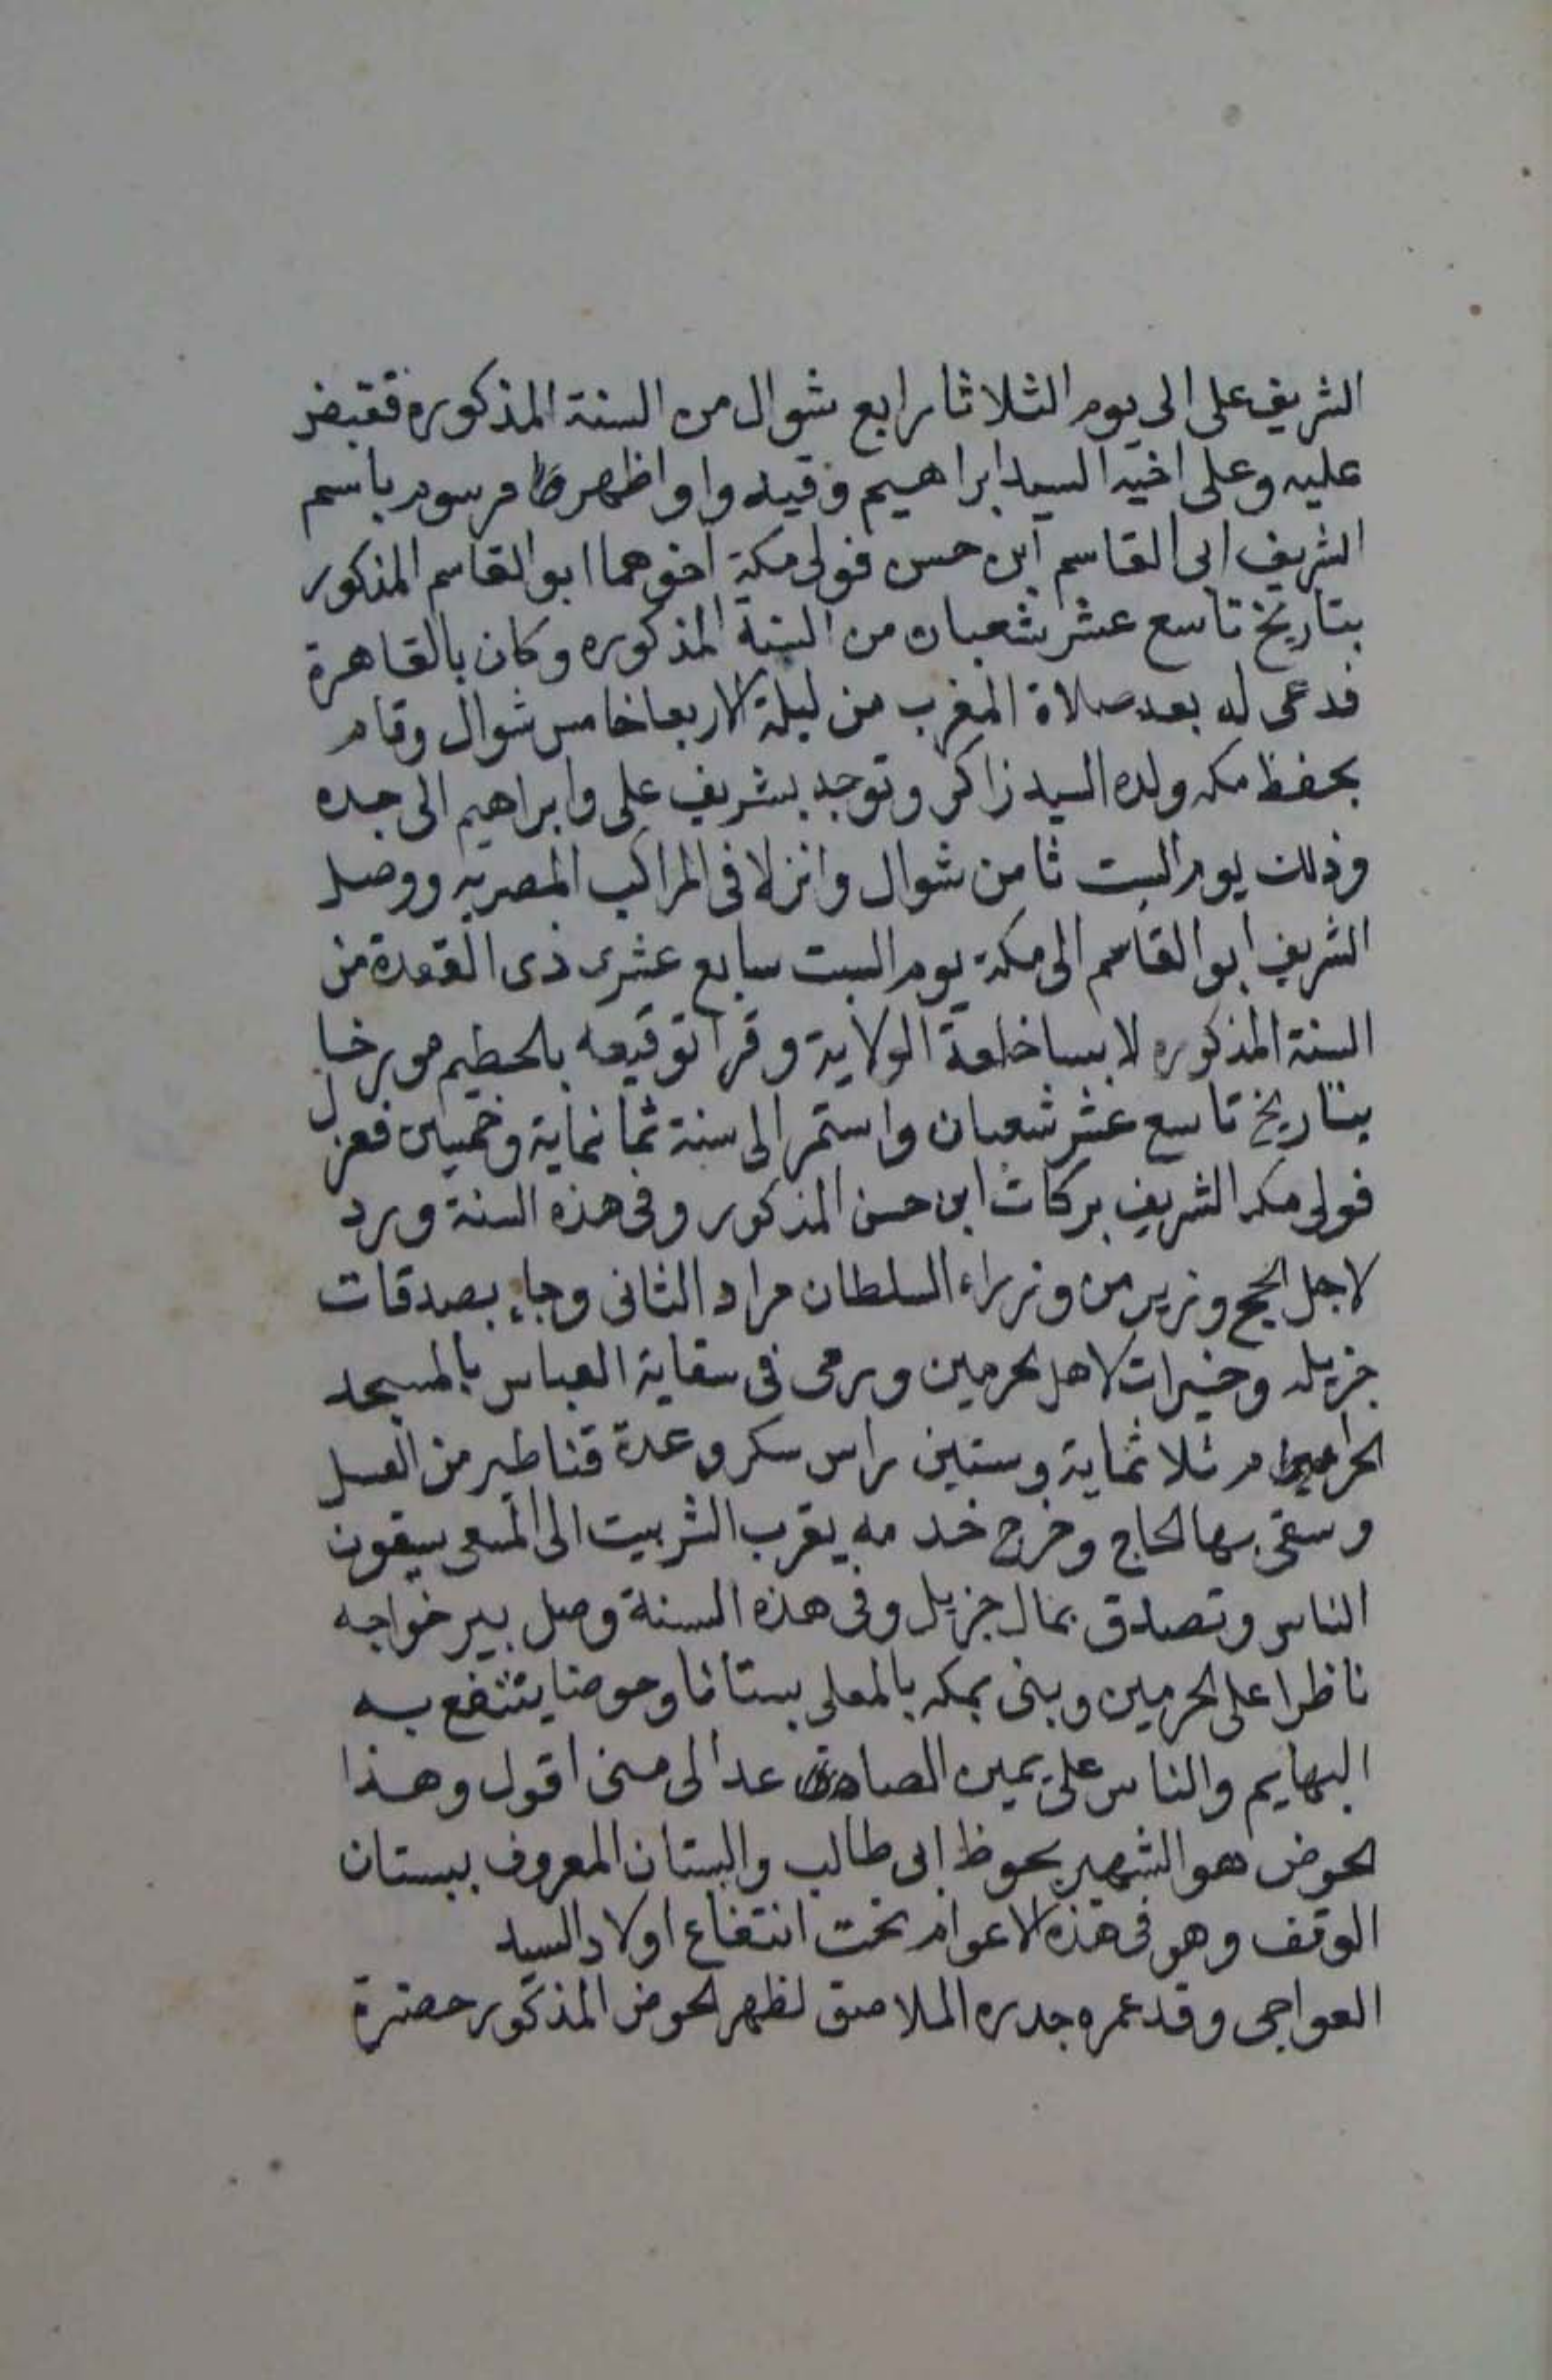 الشريف على الى يوم الثلاثا رابع شوال من السنة المذكوره فقبض
عليه وعلى اخيه السيد ابراهيم وقيدوا واظهر مرسوم باسم
الشريف ابى القاسم ابن حسن فولى مكة اخوهما ابو القاسم المذكور
بتاريخ تاسع عشر شعبان من السنة المذكوره وكان بالقاهرة
فدعى له بعد صلاة المغرب من ليلة الاربعا خامس شوال وقام
بحفظ مكه ولده السيد زاكر وتوجه بشريف على وابراهيم الى جده
وذلك يوم السبت ثامن شوال وانزلا فى المراكب المصريه ووصل
الشريف ابو القاسم الى مكة يوم السبت سابع عشرى ذى القعدة من
السنة المذكوره لابسا خلعة الولاية وقرا توقيعه بالحطيم مورخا
بتاريخ تاسع عشر شعبان واستمر الى سنة ثمانماية وخمسين فعزل
فولى مكه الشريف بركات ابن حسن المذكور وفى هذه السنة ورد
لاجل الحج وزير من وزراء السلطان مراد الثانى وجاء بصدقات
جزيله وخيرات لاهل الحرمين ورمى فى سقاية العباس بالمسجد
الحرام ثلاثماية وستين راس سكر وعدة قناطير من العسل
وسقى بها الحاج وخرج خدمه يقرب الشربيت الى المسعى يسقون
الناس وتصدق بمال جزيل وفى هذه السنة وصل بير خواجه
ناظرا على الحرمين وبنى بمكه بالمعلى بستانا وحوضا ينتفع به
البهايم والناس على يمين الصاعد الى منى اقول وهذا
الحوض هو الشهير بحوظ ابى طالب والبستان المعروف ببستان
الوقف وهو فى هذه الاعوام تحت انتفاع اولاد السيد
العواجى وقد عمره جدره الملاصق لظهر الحوض المذكور حضرة